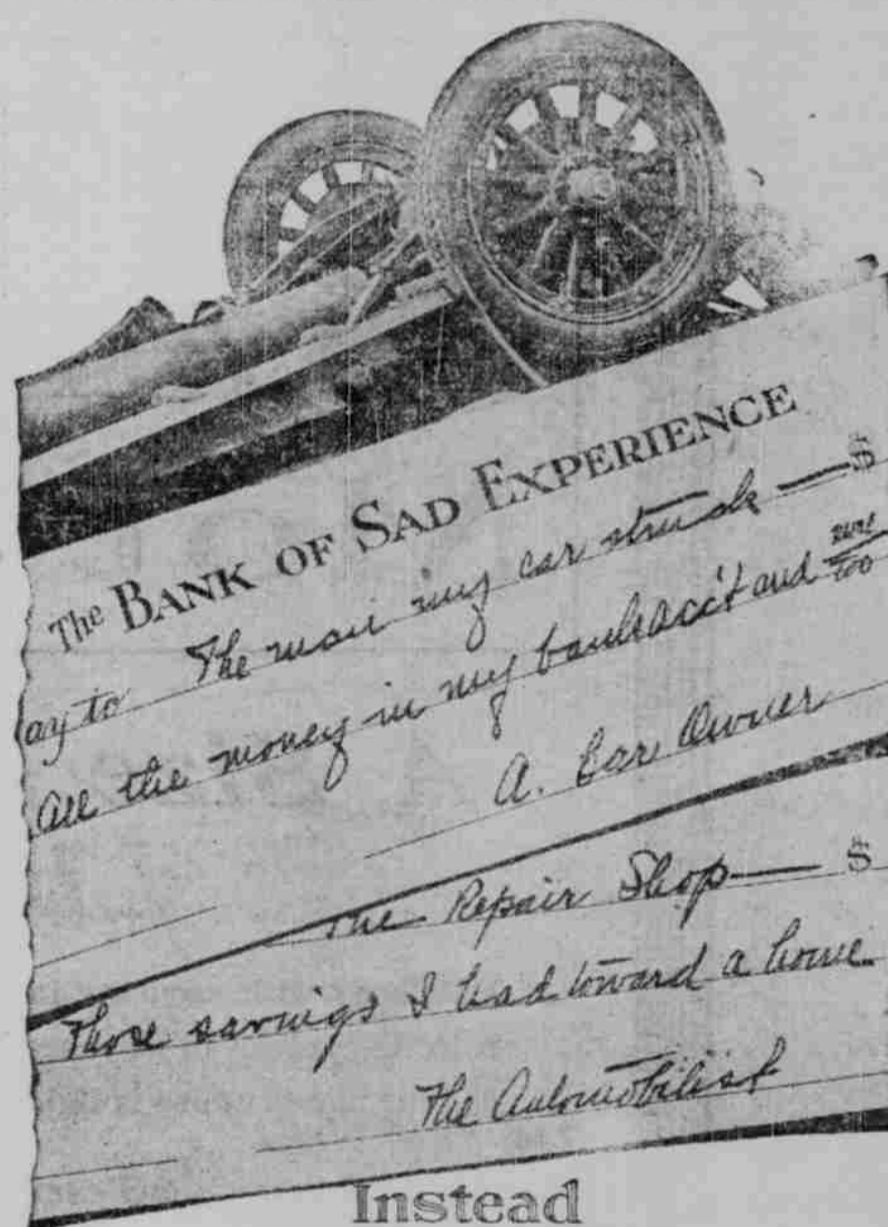 The BANK OF SAD EXPERIENCE
ay to The man my car struck — $
All the money in my bank acc't and /100
A. Car Owner
The Repair Shop — $
Those savings I had toward a home.
The Automobilist
Instead